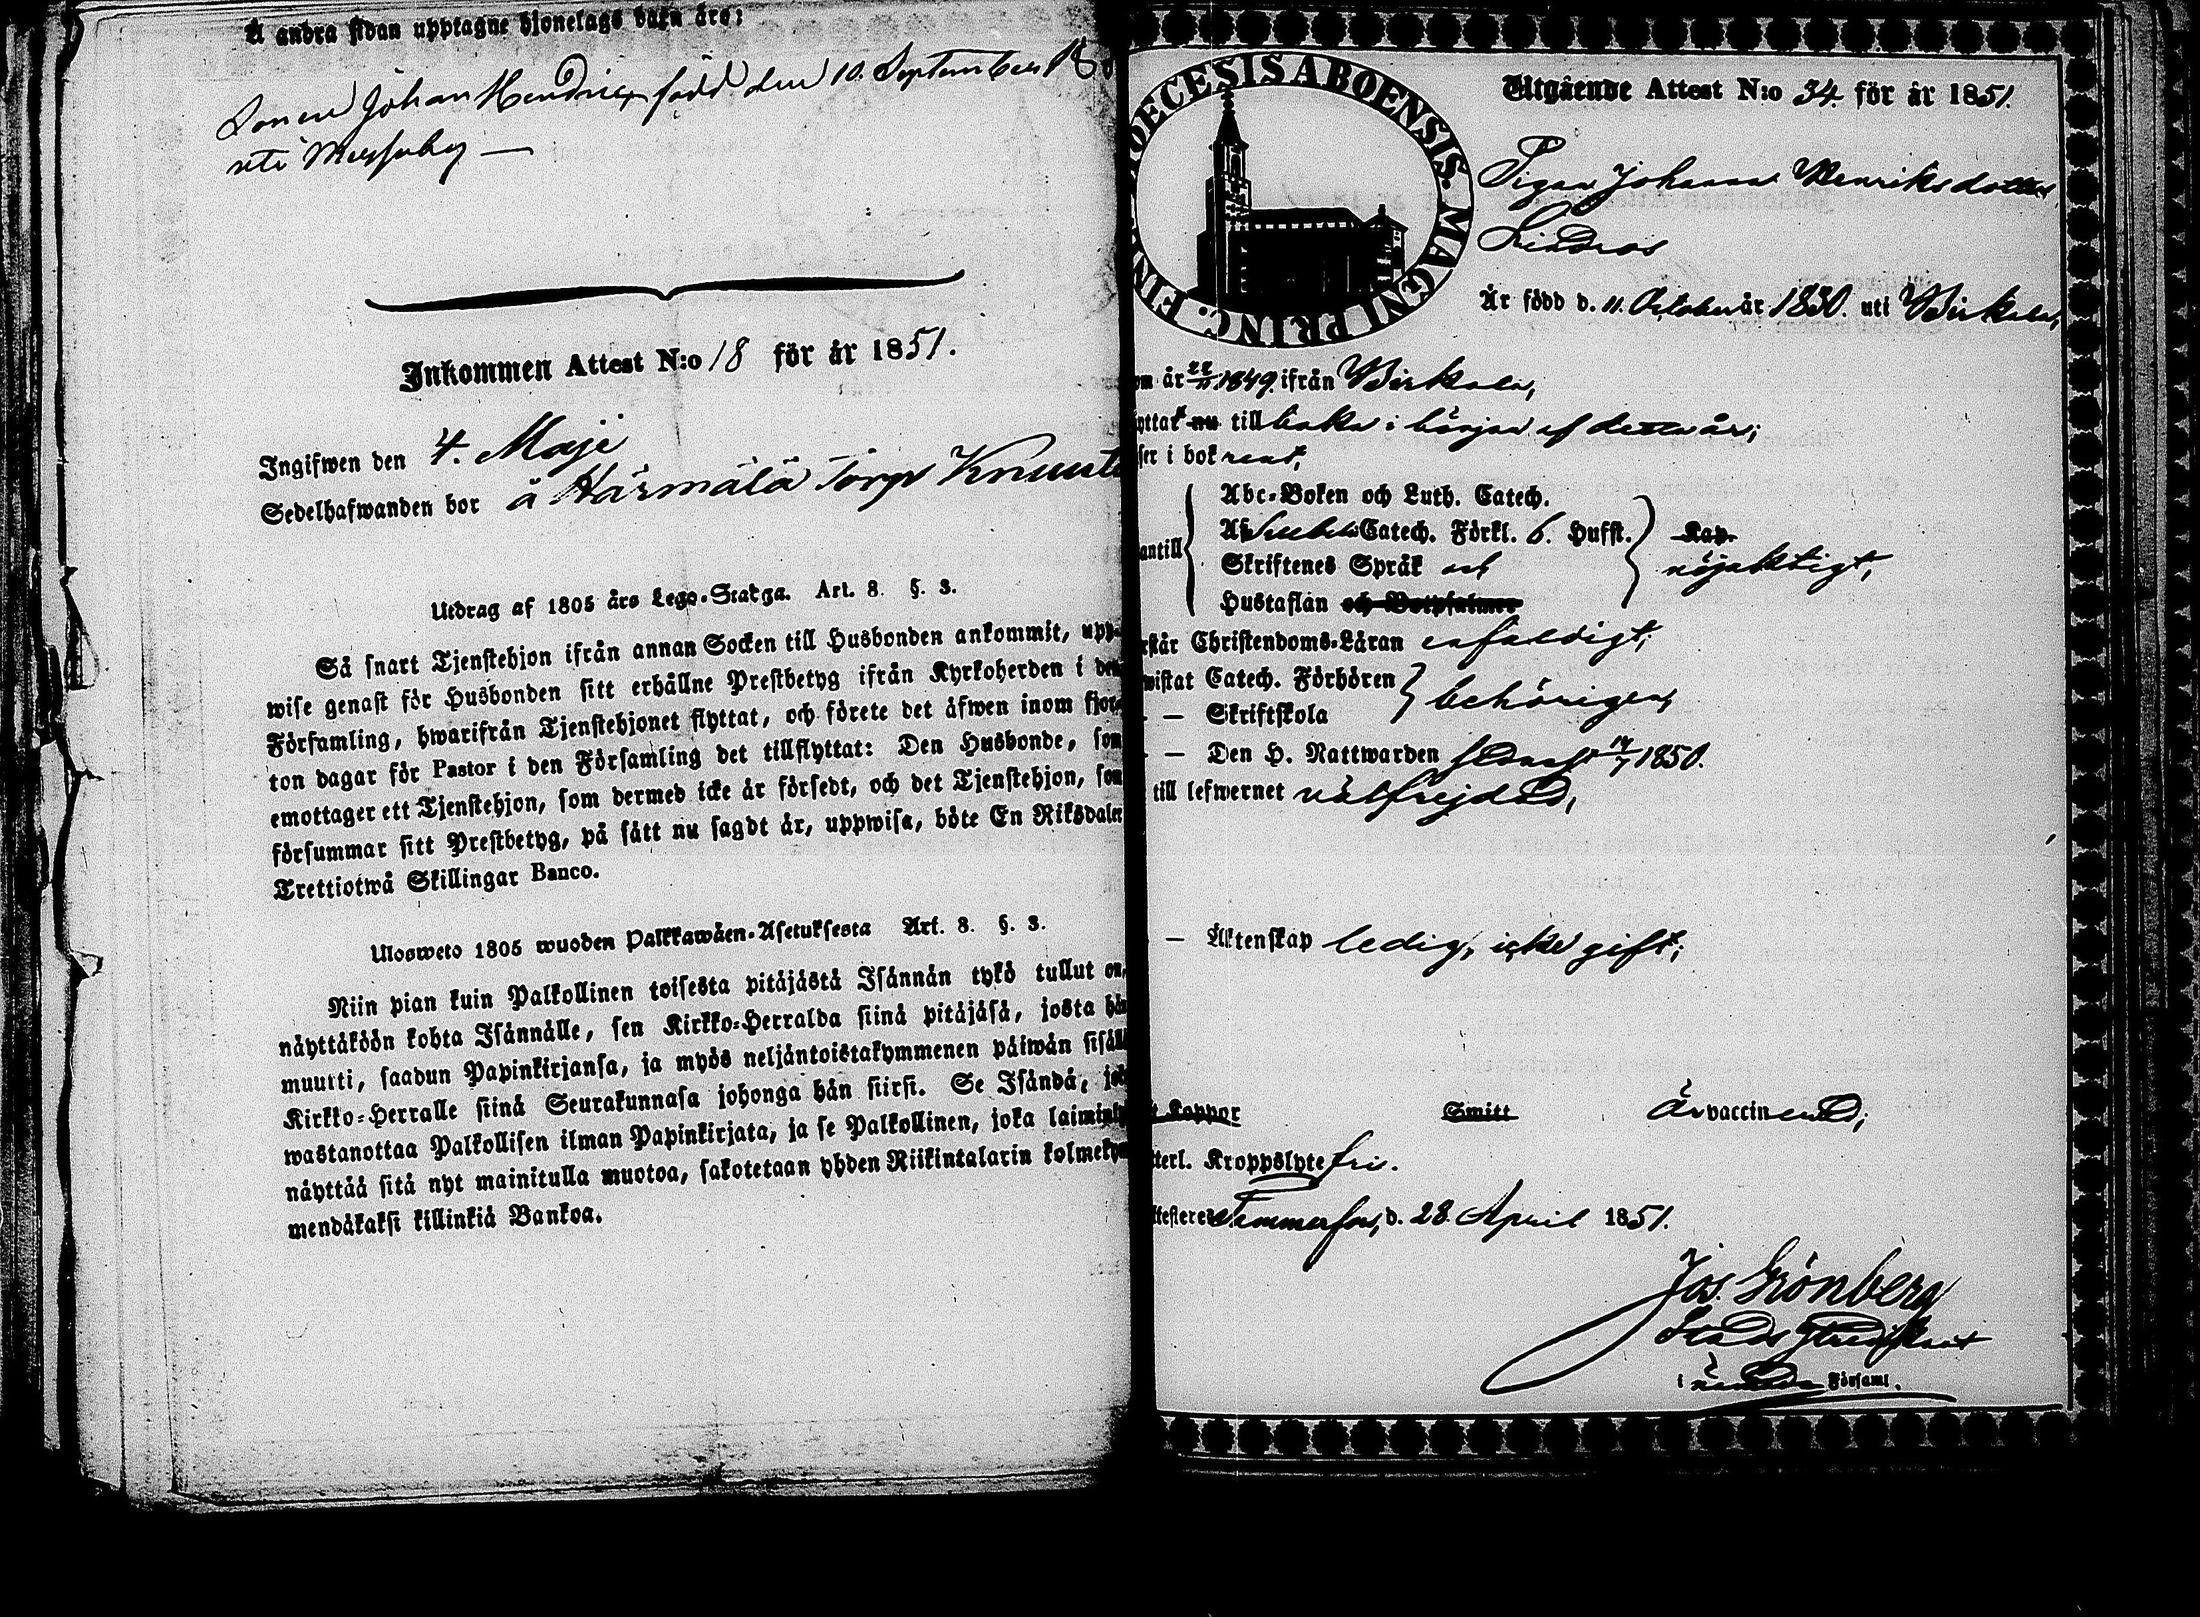 Å andra sidan upptagne hjonelags barn äro:
Sonen Johan Hendric, född den 10. September 18
uti Messuby —
Inkommen Attest N:o 18 för år 1851.
Ingifwen den 4. Maji
Sedelhafwanden bor å Härmälä Torp Knuuti
Utdrag af 1805 års Lego-Stadga. Art. 8. §. 3.
Så snart Tjenstehjon ifrån annan Socken till Husbonden ankommit, upp-
wise genast för Husbonden sitt erhållne Prestbetyg ifrån Kyrkoherden i den
Församling, hwarifrån Tjenstehjonet flyttat, och förete det äfwen inom fjor-
ton dagar för Pastor i den Församling det tillflyttat: Den Husbonde, som
emottager ett Tjenstehjon, som dermed icke är försedt, och det Tjenstehjon, som
försummar sitt Prestbetyg, på sätt nu sagdt är, uppwisa, böte En Riksdaler
Trettiotwå Skillingar Banco.
Ulosweto 1805 wuoden Palkkawäen-Asetuksesta Art. 8. §. 3.
Niin pian kuin Palkollinen toisesta pitäjästä Isännän tykö tullut on,
näyttäköön kohta Isännälle, sen Kirkko-Herralda siinä pitäjäsä, josta hän
muutti, saadun Papinkirjansa, ja myös neljäntoistakymmenen päiwän sisäll
Kirkko-Herralle siinä Seurakunnasa johonga hän siirsi. Se Isändä, jok
wastanottaa Palkollisen ilman Papinkirjata, ja se Palkollinen, joka laiminly
näyttää sitä nyt mainitulla muotoa, sakotetaan yhden Riikintalarin kolmekym
mendäkaksi killinkiä Bankoa.
DIOECESIS ABOENSIS. MAGNI PRINC. FINL
Utgående Attest N:o 34 för år 1851.
Pigan Johanna Henriksdotter
Lindros
Är född d. 11. October år 1830. uti Birkala,
om år 22/11 1849. ifrån Birkala,
yttat nu till baka i början af detta år;
ser i bok rent,
antill
Abc-Boken och Luth. Catech.
Af Catech. Förkl. 6. Hufst. Kap.
Skriftenes Språk och nöjaktigt,
Hustaflan och Botpsalmer
rstår Christendoms-Läran enfaldigt;
wistat Catech. Förhören
— Skriftskola behörigen,
— Den H. Nattwarden sednast 14/7 1850.
till lefwernet välfrejdad,
— Äktenskap ledig, icke gift;
t Koppor Smitt Är vaccinerad;
tterl. Kroppslyte fri.
ttesteres Tammerfors, d. 28. April 1851.
Jos. Grönberg
Stads Predikant
i Församl.